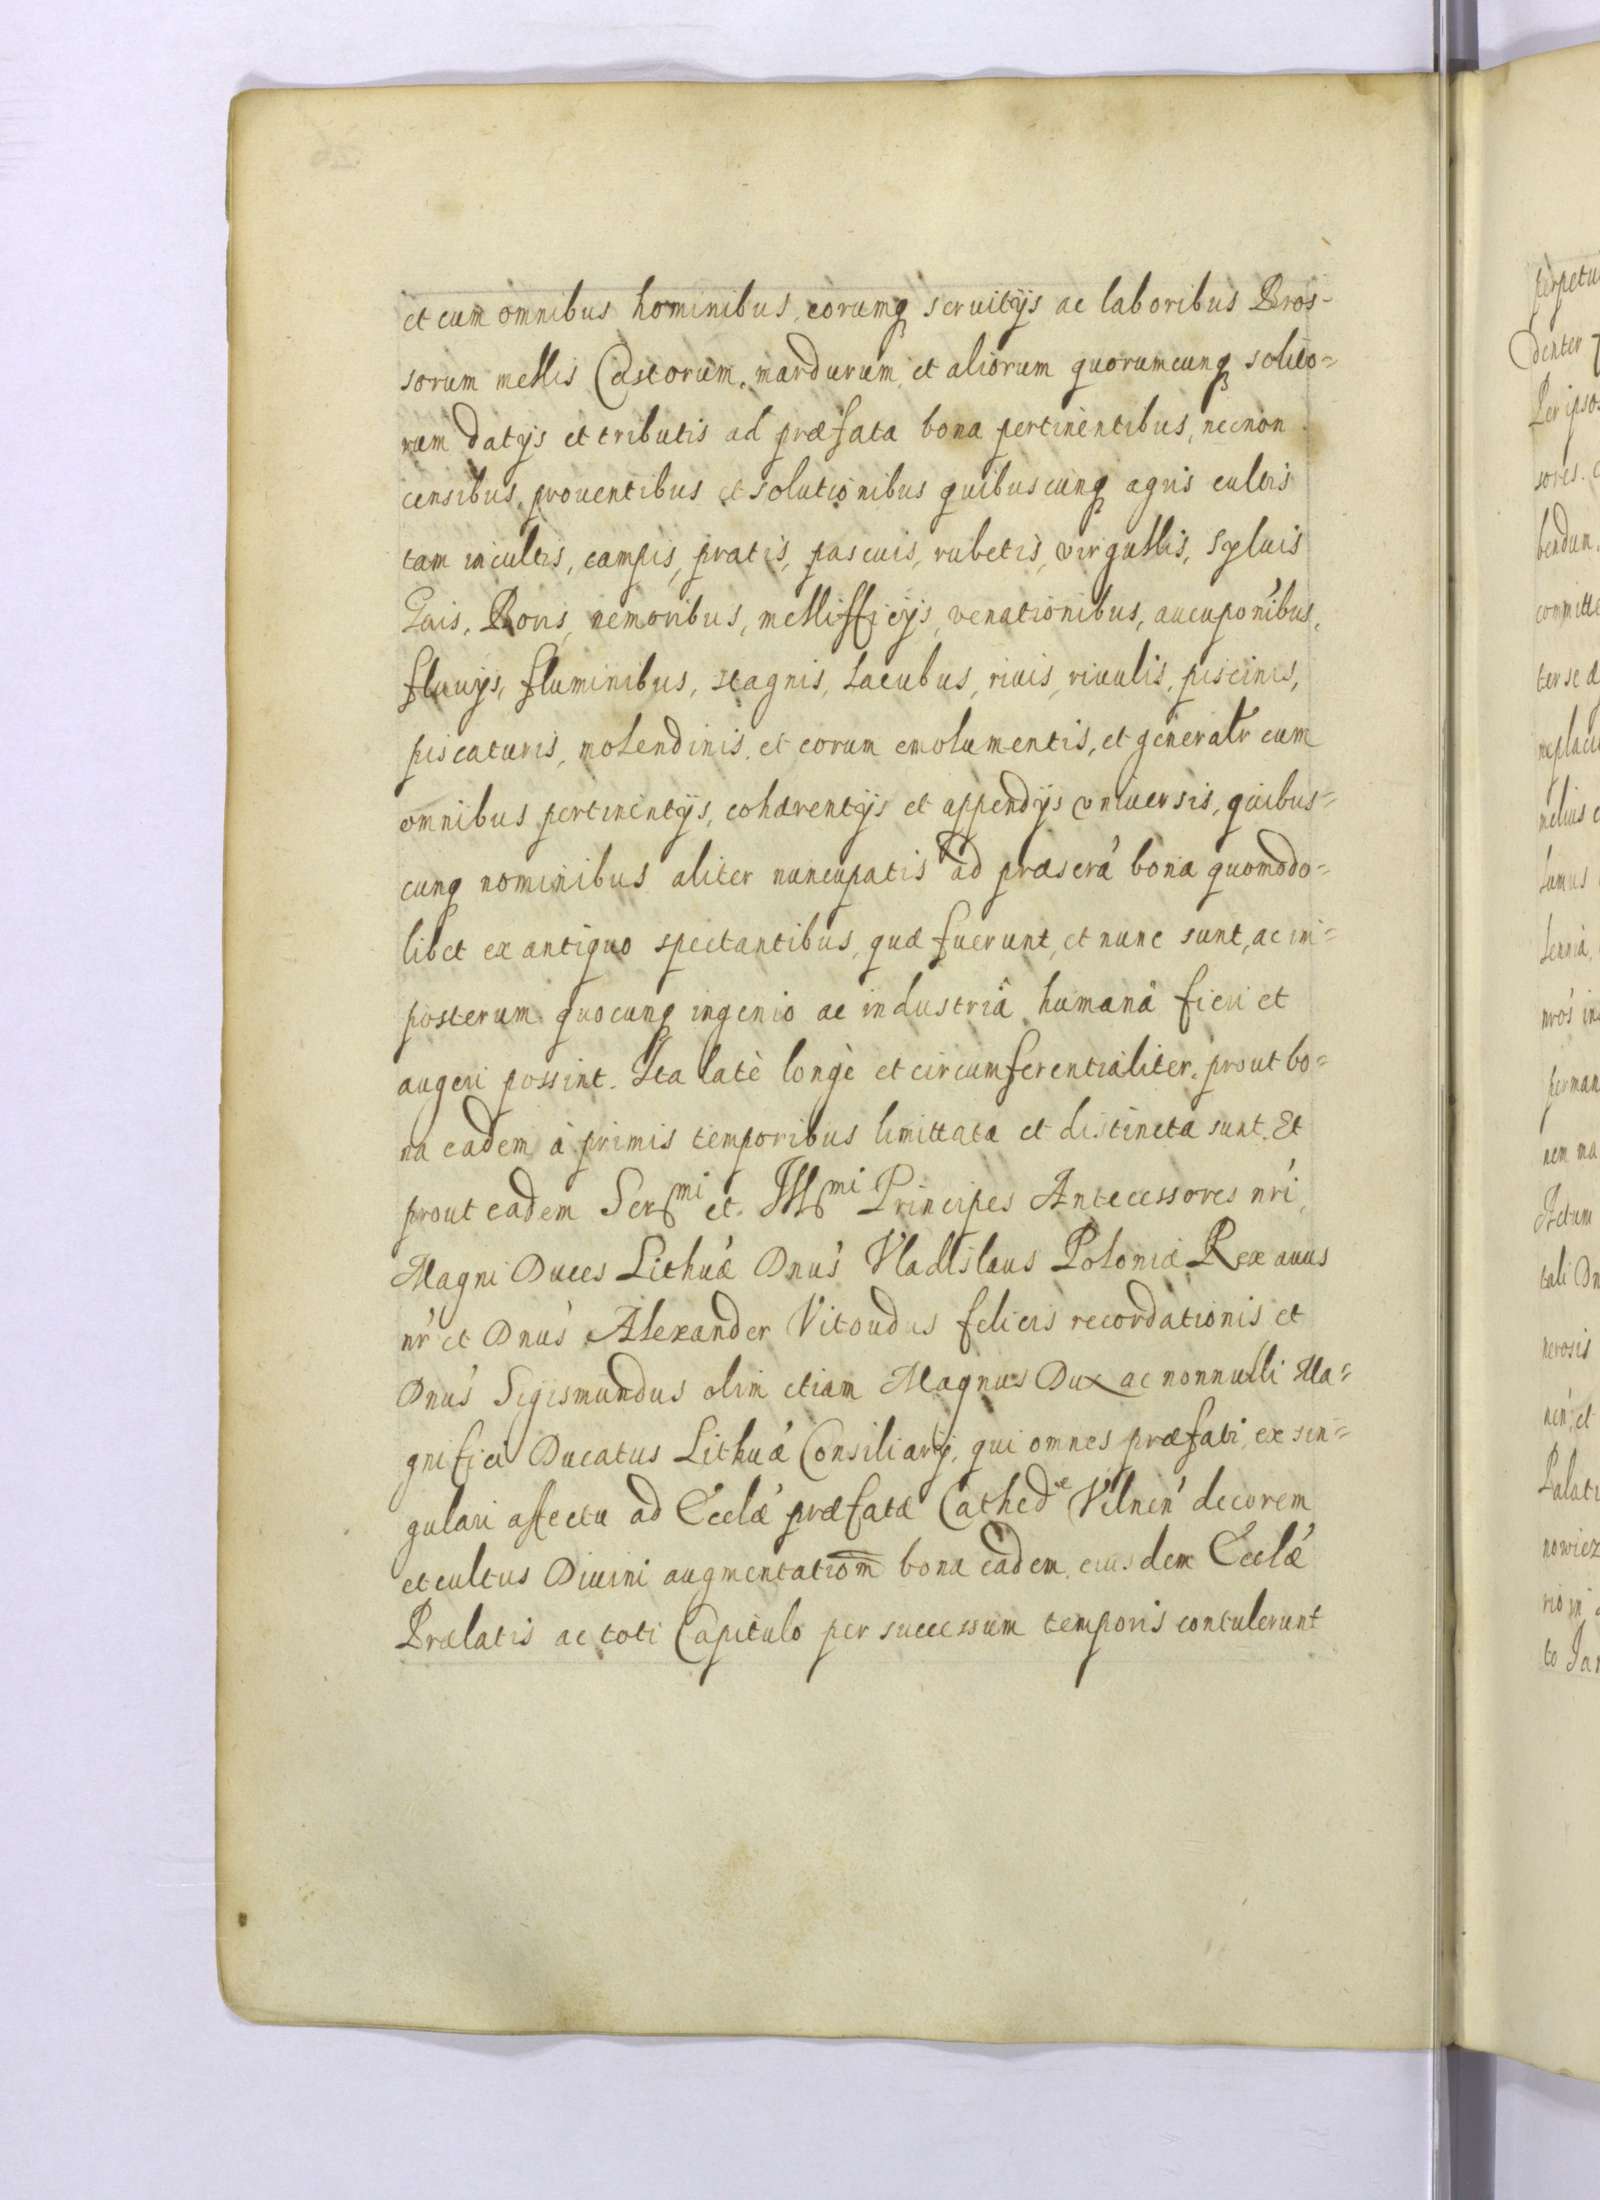 et cum omnibus hominibus, eorumq servitÿs ac laboribus Gros-
sorum mellis Castorum, mardurum, et aliorum quorumcunq solito=
rum datÿs et tributis ad præfata bona pertinentibus, necnon
censibus, proventibus et solutionibus quibuscunq agris cultis
tam incultis, campis, pratis, pascuis, rubetis, virgultis, Sylvis
Gais, Boris, nemoribus, mellifficÿs, venationibus, aucuponibus,
fluuÿs, fluminibus, stagnis, Lacubus, riuis, riuulis, piscinis,
piscaturis, molendinis, et eorum emolumentis, et generalr cum
omnibus pertinentÿs, cohærentÿs et appendÿs vniuersis, quibus=
cunq nominibus aliter nuncupatis ad præsera' bona quomodo=
libet ex antiquo spectantibus, quæ fuerunt, et nunc sunt, ac in=
posterum quocunq ingenio ac industriâ humanâ fieri et
augeri possint. Ita latè longè et circumferentialiter, prout bo=
na eadem à primis temporibus limittata et distincta sunt. Et
prout eadem Ser[mi] et Ill[mi] Principes Antecessores nri',
Magni Duces Lithuæ' Dnus' Vladislaus Poloniæ Rex auus
nr' et Dnus' Alexander Vitoudus felicis recordationis et
Dnus' Sigismundus olim etiam Magnus Dux ac nonnulli Ma=
gnifici Ducatus Lithuæ' Consiliarÿ, qui omnes præfati, ex sin=
gulari affectu ad Ecclæ' præfatæ Cathed[e] Vilnen' decorem
et cultus Diuini augmentatiom bona eadem eiusdem Ecclæ'
Prælatis ac toti Capitulo per successum temporis contulerunt